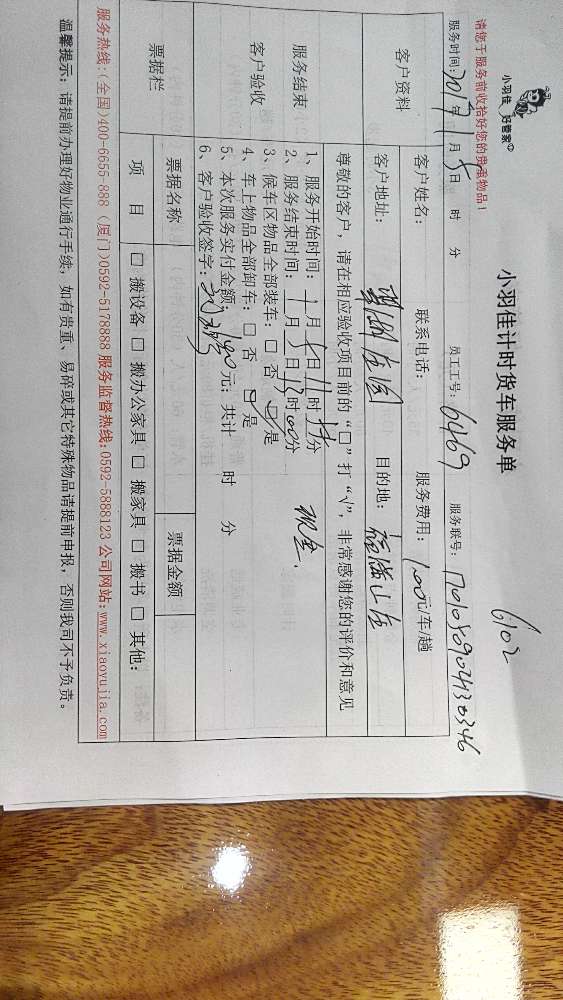 小羽佳 好管家
小羽佳计时货车服务单
6102
请您于服务前收拾好您的贵重物品！
服务时间：2017年1月5日 时 分 员工工号：6469 服务联号：
客户资料
客户姓名： 联系电话： 服务费用：100元/车/趟
客户地址： 目的地：
尊敬的客户，请在相应验收项目前的“□”打“√”，非常感谢您的评价和意见
服务结束
客户验收
1、服务开始时间：1月5日11时 分
2、服务结束时间：1月5日 时00分
3、候车区物品全部装车：□ 否 ☑ 是
4、车上物品全部卸车：□ 否 ☑ 是
5、本次服务实付金额： 元；共计 时 分
6、客户验收签字：
现金、
票据栏
票据名称 票据金额
项 目 □ 搬设备 □ 搬办公家具 □ 搬家具 □ 搬书 □ 其他：
服务热线：(全国)400-6655-888 (厦门)0592-5178888 服务监督热线：0592-5888123 公司网站：www.xiaoyujia.com
温馨提示：请提前办理好物业通行手续，如有贵重、易碎或其它特殊物品请提前申报，否则我司不予负责。